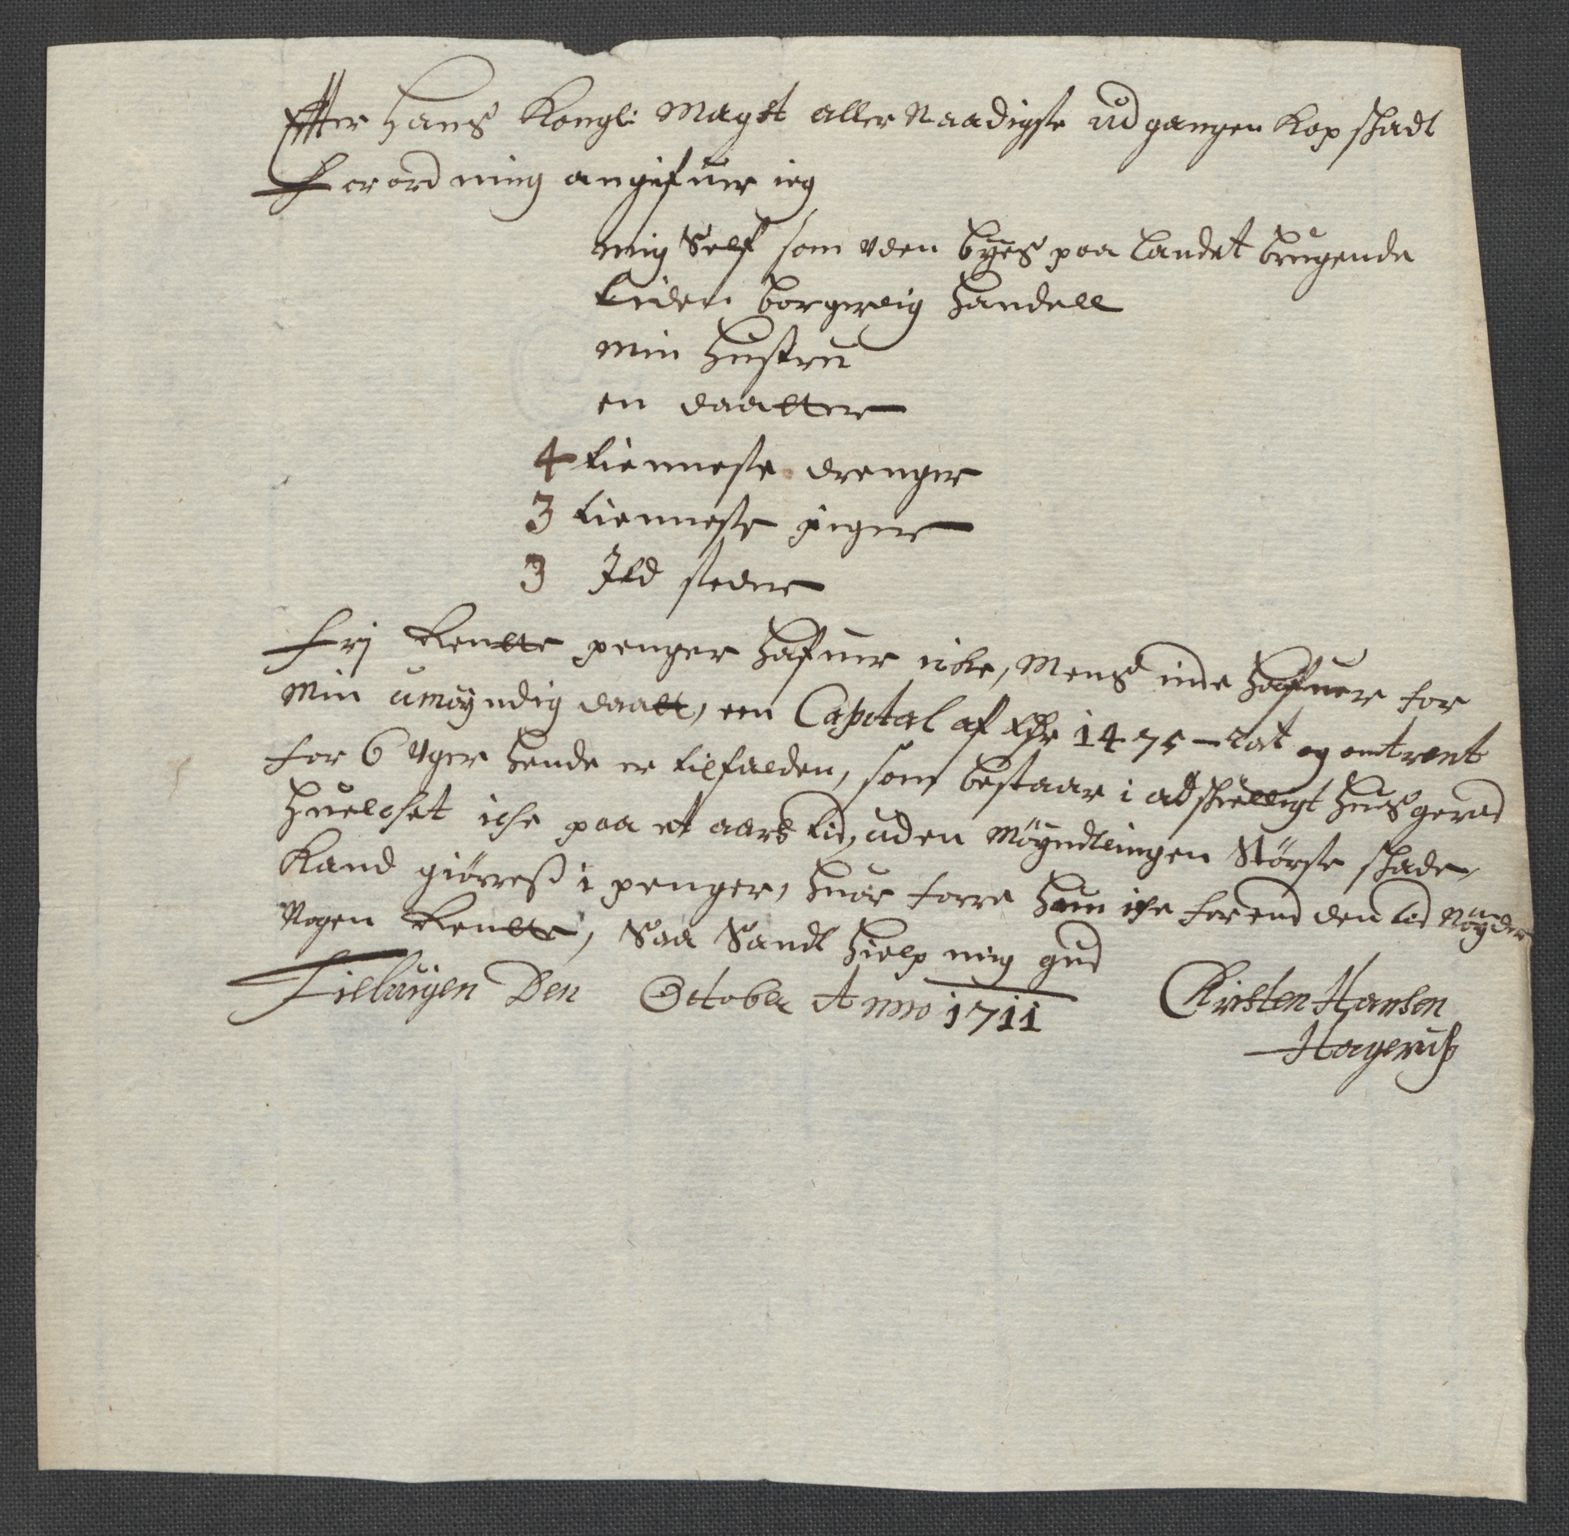 Effter Hans Kongl: Mayst aller Naadigste udgangen Kopskadt
Forordning angifuer ieg
mig Self som uden byes paa Landet brugende
liden borgerlig Handell
min Hustru
en daatter
4 tienneste drenger
3 tienneste piger
3 Ild steder
Frj Rentte penger hafuer icke, Mens inde hafuer for
Min umøyndig daatt, een Capital af Rdr 1475 – dat og omtrent
for 6 Uger hende er tilfalden, som bestaar i adskielligt Huusgeraad
Huelchet iche paa et aars tid, uden Møyndtlingen Største skade,
Kand giörreß i penger, huor forre hun iche forend den tid nÿder
Nogen Rentte, Saa Sandt hielp mig gud
Den October Anno 1711 Christen Hansen
Hagerup